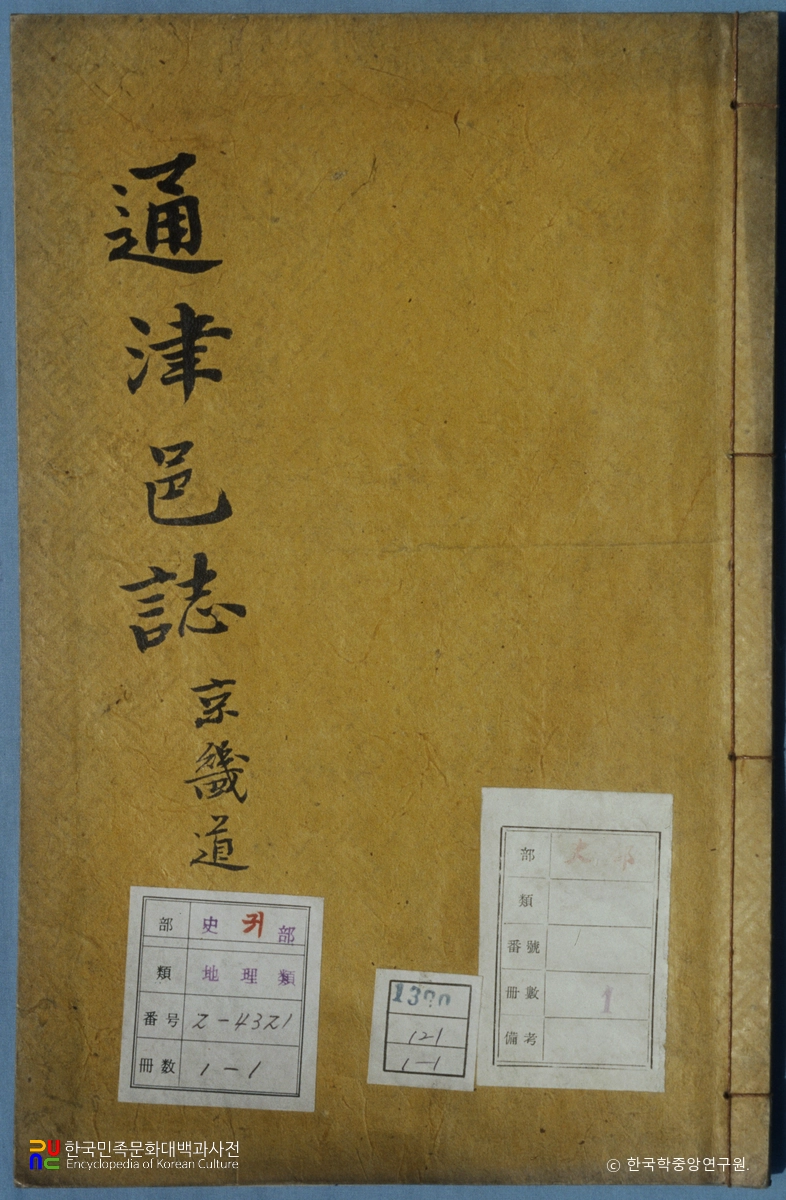 通津邑誌
京畿道
部 史 귀 部
類 地理類
番号 Z-4321
冊数 1-1
121
1-1
部 史部
類
番號
冊數 1
備考
한국민족문화대백과사전
Encyclopedia of Korean Culture
© 한국학중앙연구원.